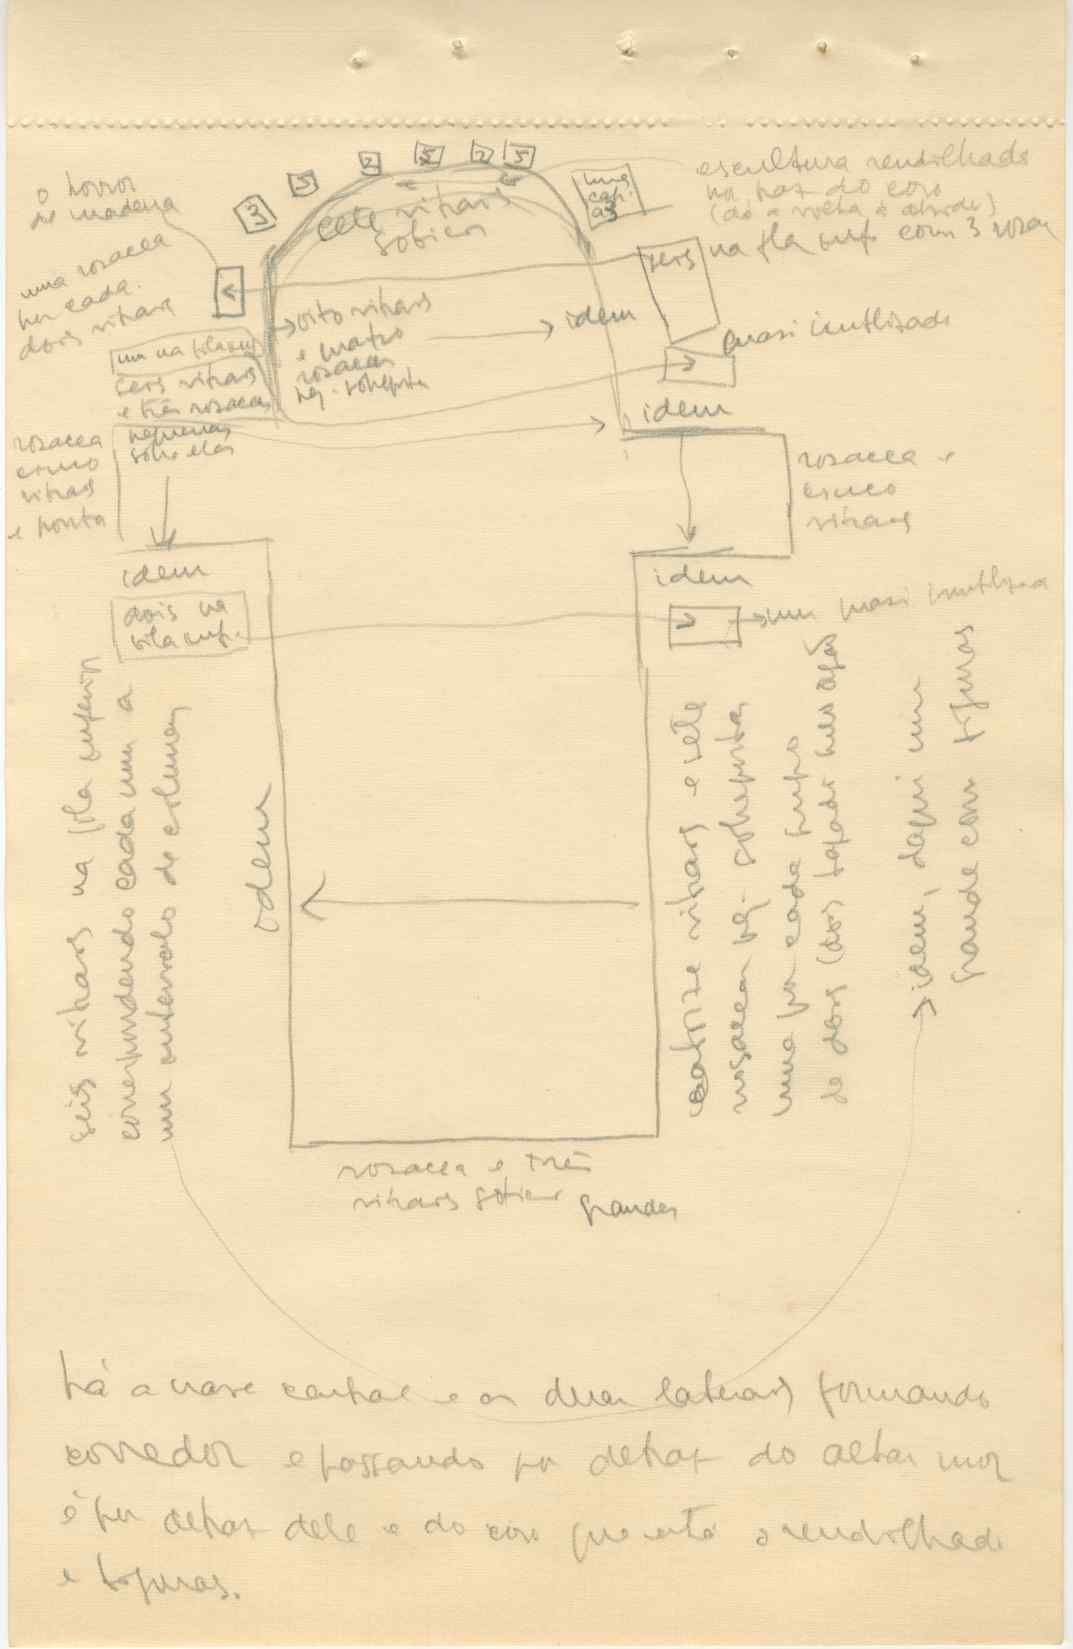 3
5
2
5
2
5
uma
cap.
escultura rendilhada
na traz do coro
(dá a volta à abside)
o horror
de madeira
sete vitrais
goticos
uma rosacea
por cada
dois vitrais
seis
na fila sup. com 3 rosac
oito vitrais
e quatro
rosaceas
peq. sobrepostas
idem
quasi inutilizado
um na fila sup
seis vitrais
e três rosaceas
pequenas
sobre elas
idem
rosacea
e cinco
vitrais
e porta
rosacea e
cinco
vitrais
idem
dois na
fila sup.
idem
um quasi inutilizado
seis vitrais na fila superior
correspondendo cada um a
um intervalo de colunas
idem
catorze vitrais e sete
rosaceas peq. sobrepostas
uma por cada grupo
de dois (dois tapados pelo orgão
idem, daqui um
grande com figuras
rosacea e três
vitrais goticos grandes
há a nave central e as duas laterais formando
corredor e passando por detraz do altar mor
é por detraz dele e do coro que está o rendilhado
e figuras.